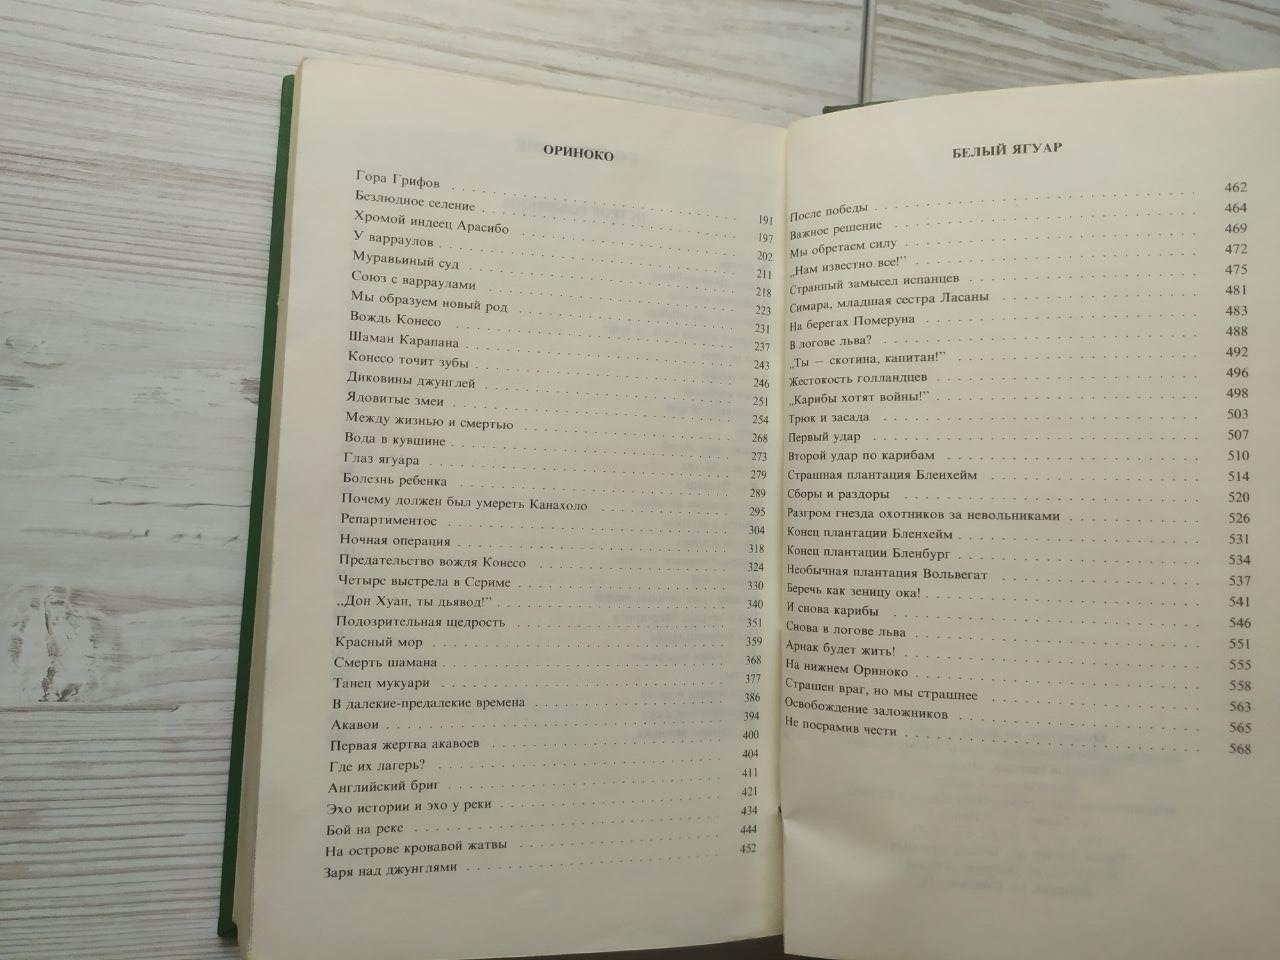 ОРИНОКО
Гора Грифов . . . . . 191
Безлюдное селение . . . . . 197
Хромой индеец Арасибо . . . . . 202
У варраулов . . . . . 211
Муравьиный суд . . . . . 218
Союз с варраулами . . . . . 223
Мы образуем новый род . . . . . 231
Вождь Конесо . . . . . 237
Шаман Карапана . . . . . 243
Конесо точит зубы . . . . . 246
Диковины джунглей . . . . . 251
Ядовитые змеи . . . . . 254
Между жизнью и смертью . . . . . 268
Вода в кувшине . . . . . 273
Глаз ягуара . . . . . 279
Болезнь ребенка . . . . . 289
Почему должен был умереть Канахоло . . . . . 295
Репартиментос . . . . . 304
Ночная операция . . . . . 318
Предательство вождя Конесо . . . . . 324
Четыре выстрела в Сериме . . . . . 330
„Дон Хуан, ты дьявол!” . . . . . 340
Подозрительная щедрость . . . . . 351
Красный мор . . . . . 359
Смерть шамана . . . . . 368
Танец мукуари . . . . . 377
В далекие-предалекие времена . . . . . 386
Акавои . . . . . 394
Первая жертва акавоев . . . . . 400
Где их лагерь? . . . . . 404
Английский бриг . . . . . 411
Эхо истории и эхо у реки . . . . . 421
Бой на реке . . . . . 434
На острове кровавой жатвы . . . . . 444
Заря над джунглями . . . . . 452
БЕЛЫЙ ЯГУАР
После победы . . . . . 462
Важное решение . . . . . 464
Мы обретаем силу . . . . . 469
„Нам известно все!” . . . . . 472
Странный замысел испанцев . . . . . 475
Симара, младшая сестра Ласаны . . . . . 481
На берегах Померуна . . . . . 483
В логове льва? . . . . . 488
„Ты — скотина, капитан!” . . . . . 492
Жестокость голландцев . . . . . 496
„Карибы хотят войны!” . . . . . 498
Трюк и засада . . . . . 503
Первый удар . . . . . 507
Второй удар по карибам . . . . . 510
Страшная плантация Бленхейм . . . . . 514
Сборы и раздоры . . . . . 520
Разгром гнезда охотников за невольниками . . . . . 526
Конец плантации Бленхейм . . . . . 531
Конец плантации Бленбург . . . . . 534
Необычная плантация Вольвегат . . . . . 537
Беречь как зеницу ока! . . . . . 541
И снова карибы . . . . . 546
Снова в логове льва . . . . . 551
Арнак будет жить! . . . . . 555
На нижнем Ориноко . . . . . 558
Страшен враг, но мы страшнее . . . . . 563
Освобождение заложников . . . . . 565
Не посрамив чести . . . . . 568